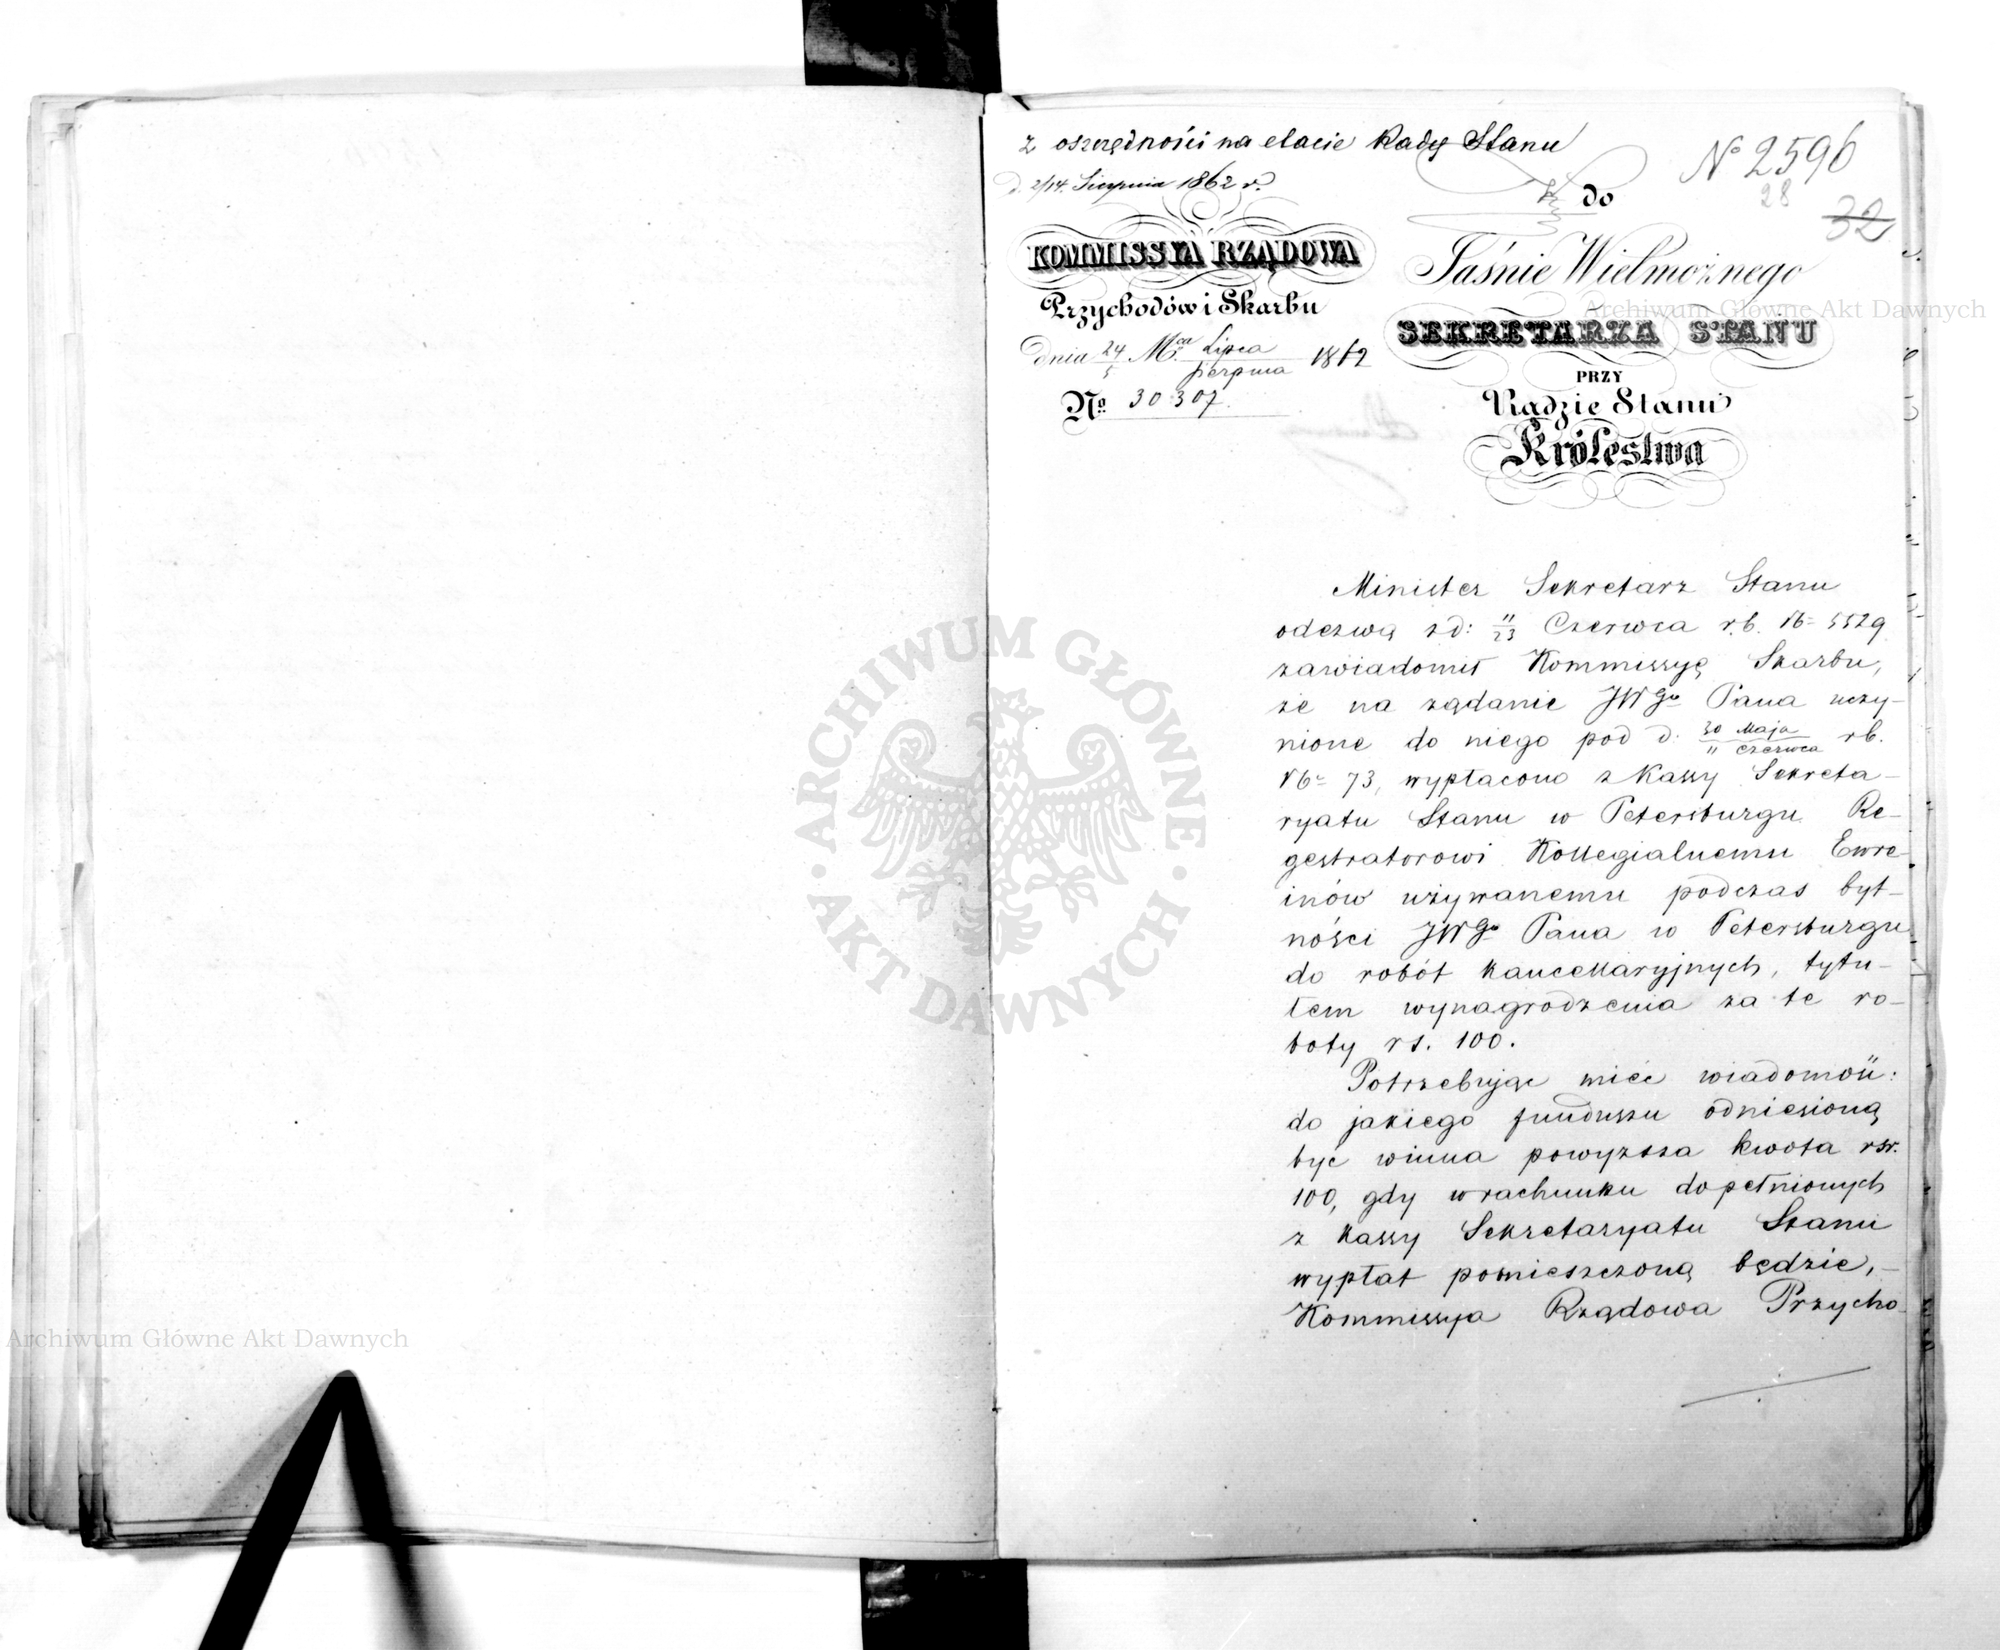 z oszczędności na etacie Rady Stanu
d. 2/14. Sierpnia 1862 r.
No 2596
28
32
KOMMISSYA RZĄDOWA
Przychodów i Skarbu
dnia 24/5 Mca Lipca/Sierpnia 1862
No 30307.
do
Jaśnie Wielmożnego
SEKRETARZA STANU
PRZY
Radzie Stanu
Królestwa
Minister Sekretarz Stanu
odezwą z d: 11/23 Czerwca r.b. No 5529
zawiadomił Kommissyę Skarbu,
że na żądanie JWgo Pana uczy-
nione do niego pod d. 30 Maja/11 Czerwca rb.
No 73, wypłacono z Kassy Sekreta-
ryatu Stanu w Petersburgu Re-
gestratorowi Kollegialnemu Ewre-
inów używanemu podczas byt-
ności JWgo Pana w Petersburgu
do robót kancellaryjnych, tytu-
łem wynagrodzenia za te ro-
boty rs. 100.
Potrzebując mieć wiadomość:
do jakiego funduszu odniesioną
być winna powyższa kwota rsr.
100, gdy w rachunku dopełnionych
z kassy Sekretaryatu Stanu
wypłat pomieszczoną będzie,-
Kommissya Rządowa Przycho-
Archiwum Główne Akt Dawnych
Archiwum Główne Akt Dawnych
ARCHIWUM GŁÓWNE
AKT DAWNYCH